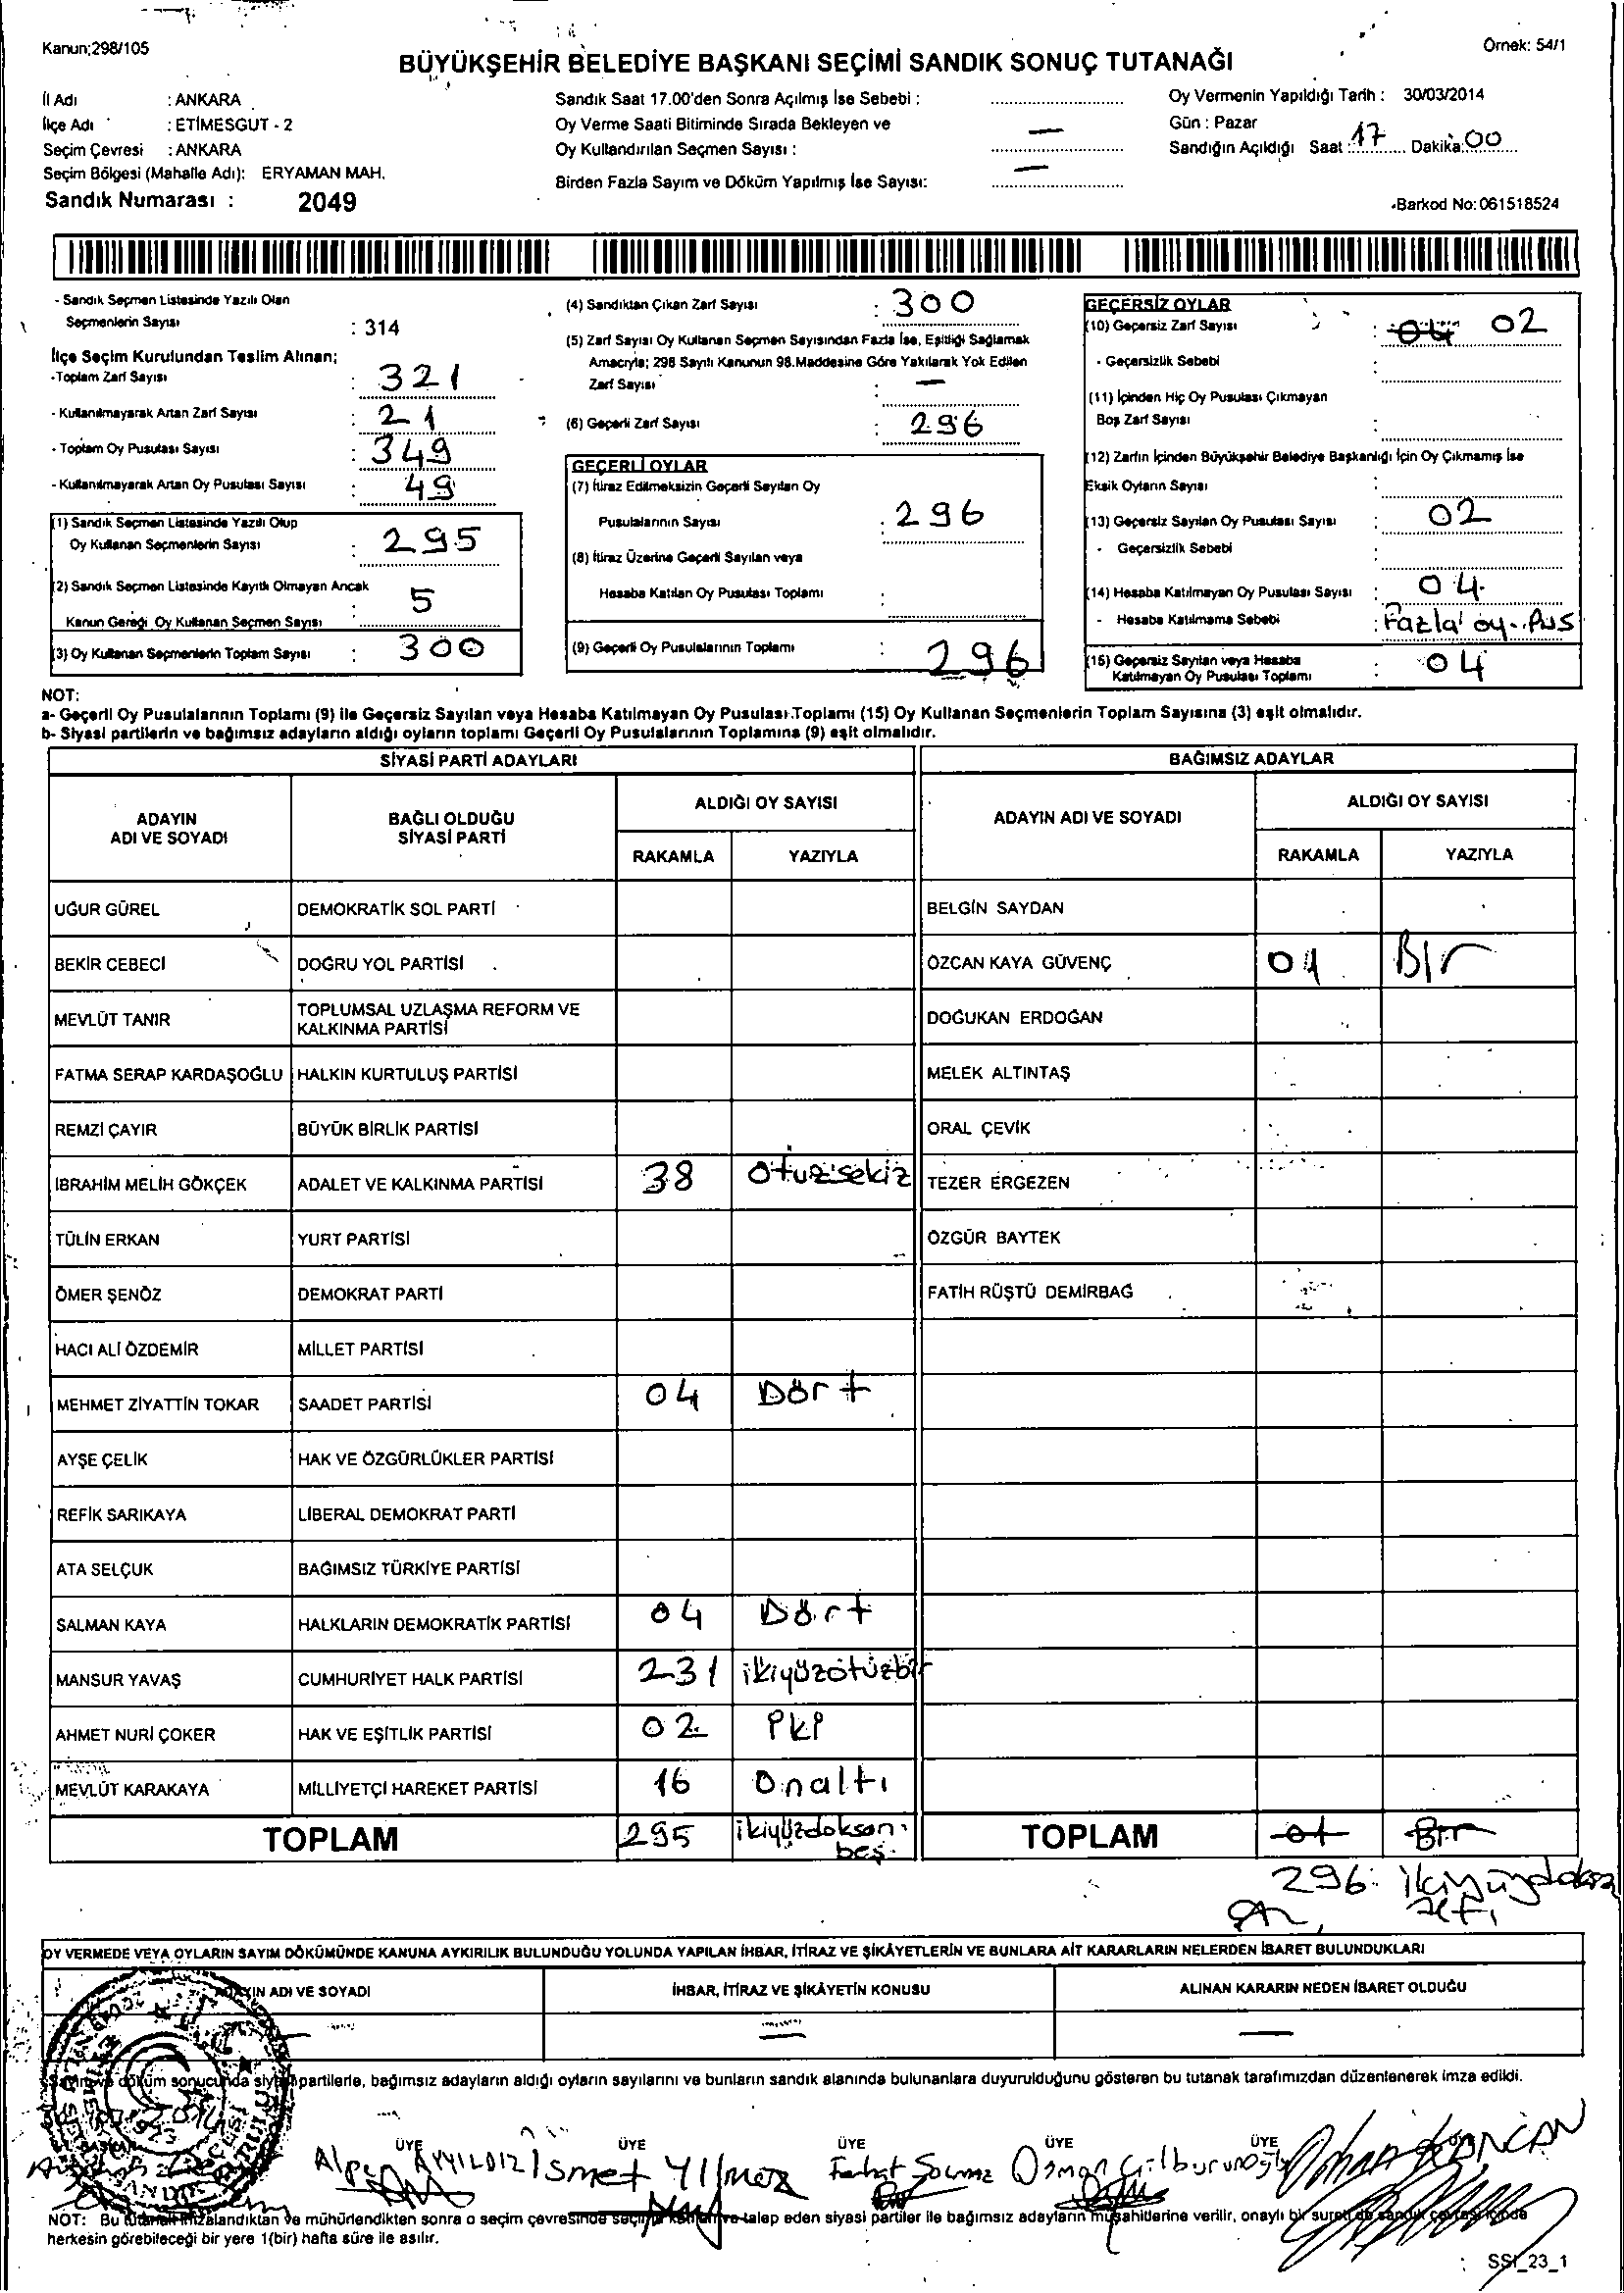 Kanun;298/105
Örnek: 54/1
BÜYÜKŞEHİR BELEDİYE BAŞKANI SEÇİMİ SANDIK SONUÇ TUTANAĞI
İl Adı : ANKARA
İlçe Adı : ETİMESGUT - 2
Seçim Çevresi : ANKARA
Seçim Bölgesi (Mahalle Adı): ERYAMAN MAH.
Sandık Numarası : 2049
Sandık Saat 17.00'den Sonra Açılmış İse Sebebi :
Oy Verme Saati Bitiminde Sırada Bekleyen ve
Oy Kullandırılan Seçmen Sayısı : —
Birden Fazla Sayım ve Döküm Yapılmış İse Sayısı: —
Oy Vermenin Yapıldığı Tarih : 30/03/2014
Gün : Pazar
Sandığın Açıldığı Saat : 17 Dakika: 00
Barkod No: 061518524
- Sandık Seçmen Listesinde Yazılı Olan
Seçmenlerin Sayısı : 314
İlçe Seçim Kurulundan Teslim Alınan;
-Toplam Zarf Sayısı : 321
- Kullanılmayarak Artan Zarf Sayısı : 21
- Toplam Oy Pusulası Sayısı : 349
- Kullanılmayarak Artan Oy Pusulası Sayısı : 49
(1) Sandık Seçmen Listesinde Yazılı Olup
Oy Kullanan Seçmenlerin Sayısı : 295
(2) Sandık Seçmen Listesinde Kayıtlı Olmayan Ancak
Kanun Gereği Oy Kullanan Seçmen Sayısı : 5
(3) Oy Kullanan Seçmenlerin Toplam Sayısı : 300
(4) Sandıktan Çıkan Zarf Sayısı : 300
(5) Zarf Sayısı Oy Kullanan Seçmen Sayısından Fazla İse, Eşitliği Sağlamak
Amacıyla; 298 Sayılı Kanunun 98.Maddesine Göre Yakılarak Yok Edilen
Zarf Sayısı : —
(6) Geçerli Zarf Sayısı : 296
GEÇERLİ OYLAR
(7) İtiraz Edilmeksizin Geçerli Sayılan Oy
Pusulalarının Sayısı : 296
(8) İtiraz Üzerine Geçerli Sayılan veya
Hesaba Katılan Oy Pusulası Toplamı :
(9) Geçerli Oy Pusulalarının Toplamı : 296
GEÇERSİZ OYLAR
(10) Geçersiz Zarf Sayısı : 04 02
- Geçersizlik Sebebi :
(11) İçinden Hiç Oy Pusulası Çıkmayan
Boş Zarf Sayısı :
(12) Zarfın İçinden Büyükşehir Belediye Başkanlığı İçin Oy Çıkmamış İse
Eksik Oyların Sayısı :
(13) Geçersiz Sayılan Oy Pusulası Sayısı : 02
- Geçersizlik Sebebi :
(14) Hesaba Katılmayan Oy Pusulası Sayısı : 04
- Hesaba Katılmama Sebebi : Fazla oy. Pus
(15) Geçersiz Sayılan veya Hesaba
Katılmayan Oy Pusulası Toplamı : 04
NOT:
a- Geçerli Oy Pusulalarının Toplamı (9) ile Geçersiz Sayılan veya Hesaba Katılmayan Oy Pusulası Toplamı (15) Oy Kullanan Seçmenlerin Toplam Sayısına (3) eşit olmalıdır.
b- Siyasi partilerin ve bağımsız adayların aldığı oyların toplamı Geçerli Oy Pusulalarının Toplamına (9) eşit olmalıdır.
SİYASİ PARTİ ADAYLARI BAĞIMSIZ ADAYLAR
ADAYIN ADI VE SOYADI BAĞLI OLDUĞU SİYASİ PARTİ ALDIĞI OY SAYISI ADAYIN ADI VE SOYADI ALDIĞI OY SAYISI
RAKAMLA YAZIYLA RAKAMLA YAZIYLA
UĞUR GÜREL DEMOKRATİK SOL PARTİ BELGİN SAYDAN
BEKİR CEBECİ DOĞRU YOL PARTİSİ ÖZCAN KAYA GÜVENÇ 01 Bir
MEVLÜT TANIR TOPLUMSAL UZLAŞMA REFORM VE KALKINMA PARTİSİ DOĞUKAN ERDOĞAN
FATMA SERAP KARDAŞOĞLU HALKIN KURTULUŞ PARTİSİ MELEK ALTINTAŞ
REMZİ ÇAYIR BÜYÜK BİRLİK PARTİSİ ORAL ÇEVİK
İBRAHİM MELİH GÖKÇEK ADALET VE KALKINMA PARTİSİ 38 otuzsekiz TEZER ERGEZEN
TÜLİN ERKAN YURT PARTİSİ ÖZGÜR BAYTEK
ÖMER ŞENÖZ DEMOKRAT PARTİ FATİH RÜŞTÜ DEMİRBAĞ
HACI ALİ ÖZDEMİR MİLLET PARTİSİ
MEHMET ZİYATTİN TOKAR SAADET PARTİSİ 04 Dört
AYŞE ÇELİK HAK VE ÖZGÜRLÜKLER PARTİSİ
REFİK SARIKAYA LİBERAL DEMOKRAT PARTİ
ATA SELÇUK BAĞIMSIZ TÜRKİYE PARTİSİ
SALMAN KAYA HALKLARIN DEMOKRATİK PARTİSİ 04 Dört
MANSUR YAVAŞ CUMHURİYET HALK PARTİSİ 231 ikiyüzotuzbir
AHMET NURİ ÇOKER HAK VE EŞİTLİK PARTİSİ 02 İki
MEVLÜT KARAKAYA MİLLİYETÇİ HAREKET PARTİSİ 16 Onaltı
TOPLAM 295 ikiyüzdoksanbeş TOPLAM 01 Bir
296 ikiyüzdoksan
altı
OY VERMEDE VEYA OYLARIN SAYIM DÖKÜMÜNDE KANUNA AYKIRILIK BULUNDUĞU YOLUNDA YAPILAN İHBAR, İTİRAZ VE ŞİKÂYETLERİN VE BUNLARA AİT KARARLARIN NELERDEN İBARET BULUNDUKLARI
ADI VE SOYADI İHBAR, İTİRAZ VE ŞİKÂYETİN KONUSU ALINAN KARARIN NEDEN İBARET OLDUĞU
— — —
döküm sonucunda siyasi partilerle, bağımsız adayların aldığı oyların sayılarını ve bunların sandık alanında bulunanlara duyurulduğunu gösteren bu tutanak tarafımızdan düzenlenerek imza edildi.
ÜYE ÜYE ÜYE ÜYE ÜYE
Alper AYYILDIZ İsmet Yılmaz Ferhat Osman
NOT: Bu tutanak imzalandıktan ve mühürlendikten sonra o seçim çevresinde seçime katılan ve talep eden siyasi partiler ile bağımsız adayların müşahitlerine verilir, onaylı bir sureti de sandık çevresi içinde
herkesin görebileceği bir yere 1(bir) hafta süre ile asılır.
SSI_23_1